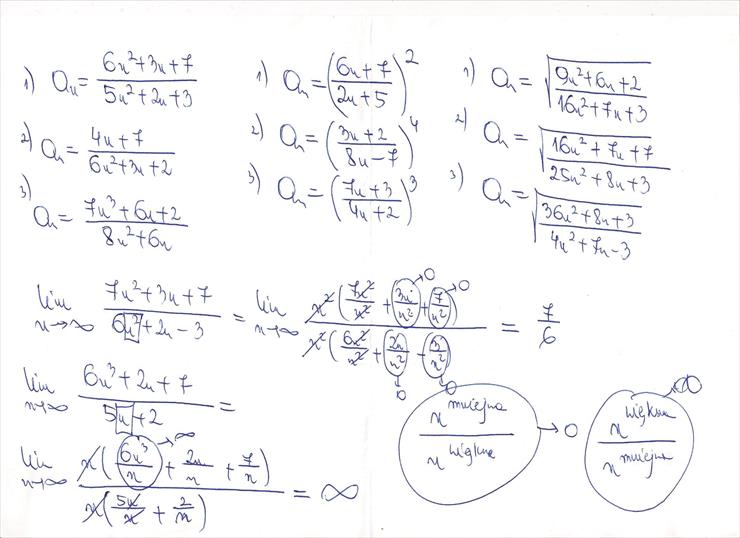 1) aₙ = (6n²+3n+7)/(5n²+2n+3)
2) aₙ = (4n+7)/(6n²+3n+2)
3) aₙ = (7n³+6n+2)/(8n²+6n)
1) aₙ = ((6n+7)/(2n+5))²
2) aₙ = ((3n+2)/(8n-7))⁴
3) aₙ = ((7n+3)/(4n+2))³
1) aₙ = √((9n²+6n+2)/(16n²+7n+3))
2) aₙ = √((16n²+7n+7)/(25n²+8n+3))
3) aₙ = √((36n²+8n+3)/(4n²+7n-3))
lim n→∞ (7n²+3n+7)/(6n²+2n-3) = lim n→∞ n²(7n²/n² + 3n/n² + 7/n²)/n²(6n²/n² + 2n/n² - 3/n²) = 7/6
→0 →0
→0 →0
lim n→∞ (6n³+2n+7)/(5n+2) =
lim n→∞ n(6n³/n + 2n/n + 7/n)/n(5n/n + 2/n) = ∞
→∞
n^mniejsza / n^większe → 0
n^większa / n^mniejsza → ∞